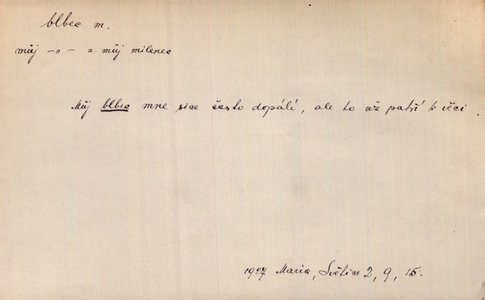 blbec m.
můj –„– = můj milenec
Můj blbec mne sice často dopálí, ale to už patří k věci.
1907 Maria, Světice 2, 9, 15.